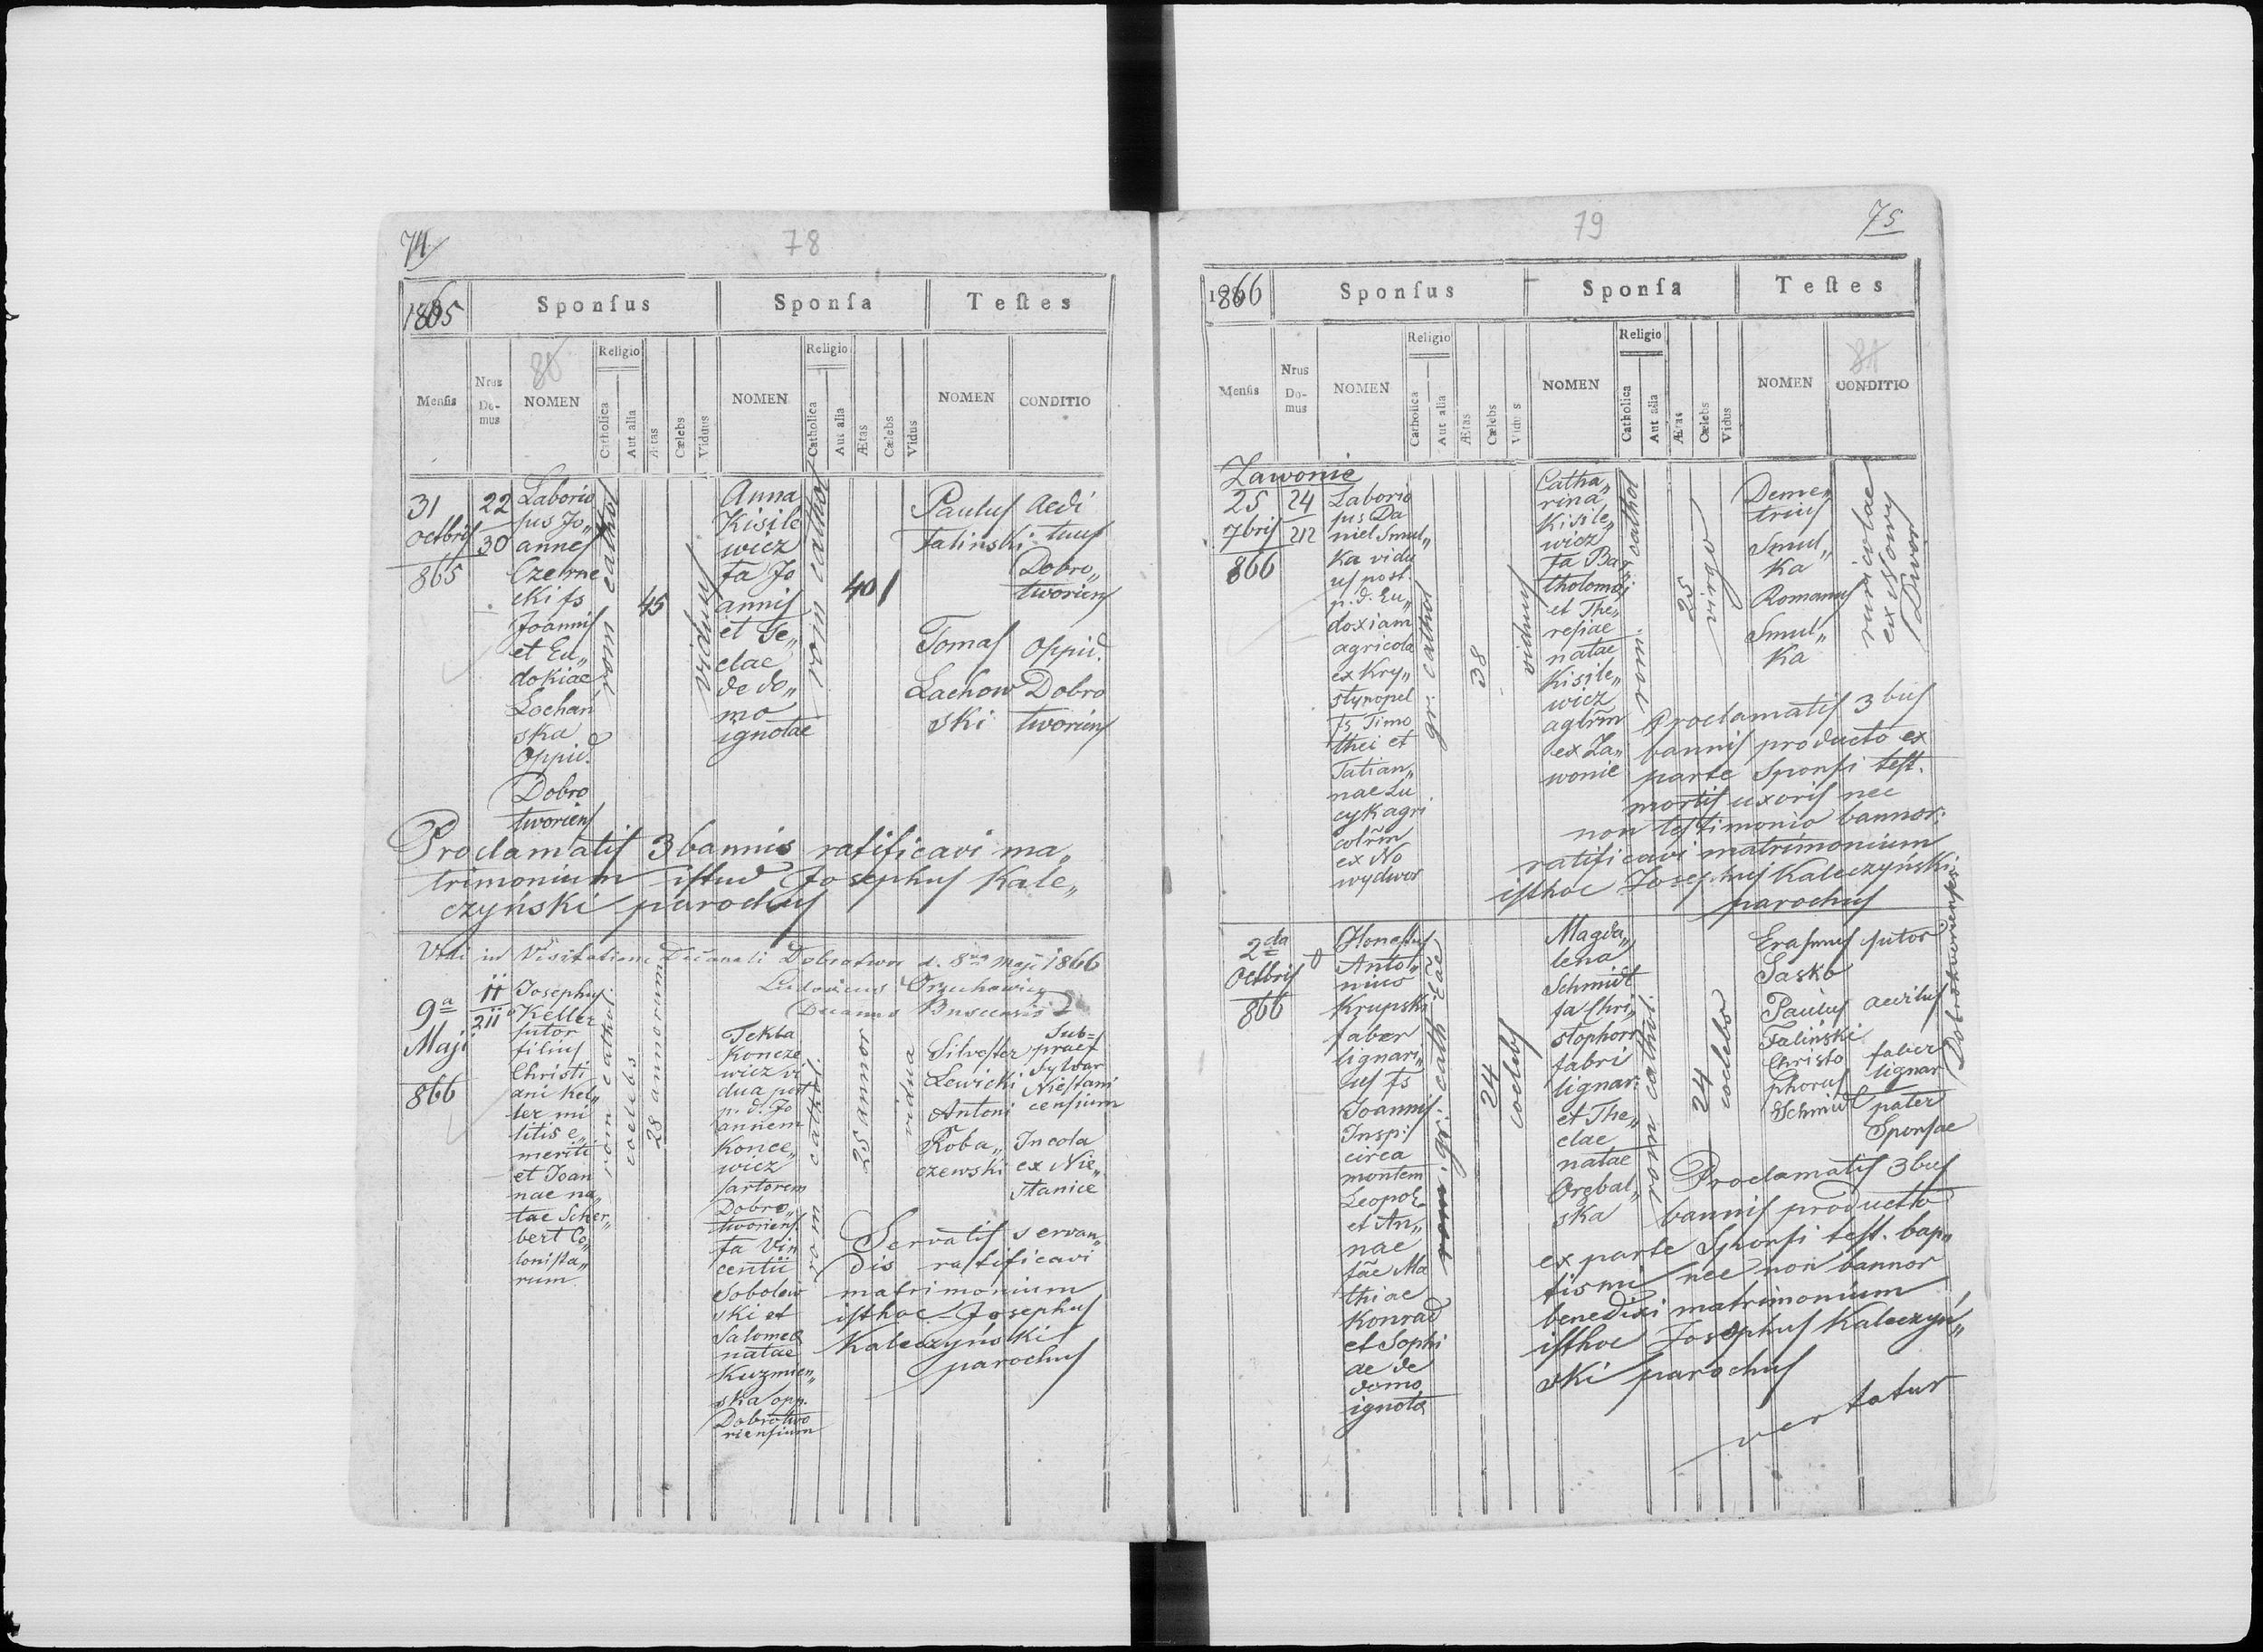 74
78
1865
Sponſus
Sponſa
Teſtes
Menſis
Nrus Do-mus
80
NOMEN
Religio
Catholica
Aut alia
Ætas
Cælebs
Viduus
NOMEN
Religio
Catholica
Aut alia
Ætas
Cælebs
Vidus
NOMEN
CONDITIO
31
octbris
865
22
30
Laborio
sus Jo„
annes
Czerne
cki fs
Joannis
et Eu„
dokiae
Lochań
ska
oppid.
Dobro
tworiens
rom cathol
45
viduus
Anna
Kisile
wicz
fa Jo
annis
et Te„
clae
de do„
mo
ignotae
rom cathol
40
Paulus
Falinski
Aedi
tuus
Dobro„
tworiens
Tomas
Lachow
ski
oppid.
Dobro
tworiens
Proclamatis 3 bannis ratificavi ma„
trimonium istud Josephus Kale„
czyński parochus
Vidi in Visitatione Decanali Dobrotwor d. 8va Maji 1866
Ludovicus Orzechowicz
Decanus Buscensis
9a
Maji
866
11
211
Josephus
Keller
sutor
filius
Christi
ani Kel„
ler mi
litis e„
meriti
et Joan
nae na„
tae Scher„
bert Co„
lonista„
rum
rom cathol
coelebs
28 annorum
Tekla
Koncze
wicz vi
dua post
p. d. Jo
annem
Konce„
wicz
sartorem
Dobro„
tworiens
fa Vin
centii
Sobolew
ski et
Salomea
natae
Kuzmien„
ska opp.
Dobrotwo
riensium
rom cathol.
25 annor
vidua
Silvester
Lewicki
Sub=
praef
Sylvar
Niestani
censium
Antoni
Roba„
czewski
Incola
ex Nie„
stanice
Servatis servan„
dis ratificavi
matrimonium
isthoc Josephus
Kaleczyński
parochus
79
75
1866
Sponſus
Sponſa
Teſtes
Menſis
Nrus Do-mus
NOMEN
Religio
Catholica
Aut alia
Ætas
Cælebs
Vidus
NOMEN
Religio
Catholica
Aut alia
Ætas
Cælebs
Vidus
NOMEN
81
CONDITIO
Zawonie
25
7bris
866
24
212
Laborio
sus Da
niel Smul„
ka vidu
us post
p. d. Eu„
doxiam
agricola
ex Kry„
stynopel
fs Timo
thei et
Tatian„
nae Lu
cyk agri
colrm
ex No
wydwor
gr. cathol
38
viduus
Catha„
rina
Kisile„
wicz
fa Bar
tholomei
et The„
resiae
natae
Kisile„
wicz
agrlm
ex Za„
wonie
rom. cathol
25
virgo
Deme„
trius
Smul„
ka
Romanus
Smul„
ka
ruricolae
ex Nowy
Dwor
Proclamatis 3 bus
bannis producto ex
parte Sponsi test.
mortis uxoris nec
non testimonio bannor:
ratificavi matrimonium
isthoc Josephus Kaleczyński
parochus
2da
Octbris
866
Honestus
Anto„
nius
Krupski
faber
lignari„
us fs
Joannis
Insp:
circa
montem
Leopol
et An„
nae
fae Ma
thiae
Konrad
et Sophi
ae de
domo
ignota
rom. gr. cath
24
coelebs
Magda„
lena
Schmidt
fa Chri„
stophori
fabri
lignar:
et The„
clae
natae
Orębal„
ska
rom cathol.
24
coelebs
Erasmus
Sasko
sutor
Paulus
Falinski
aedituus
Christo
phorus
Schmidt
faber
lignar
pater
Sponsae
Dobrotworienses
Proclamatis 3 bus
bannis producto
ex parte Sponsi test. bap„
tismi nec non bannor
benedixi matrimonium
isthoc Josephus Kaleczyń„
ski parochus
vertatur